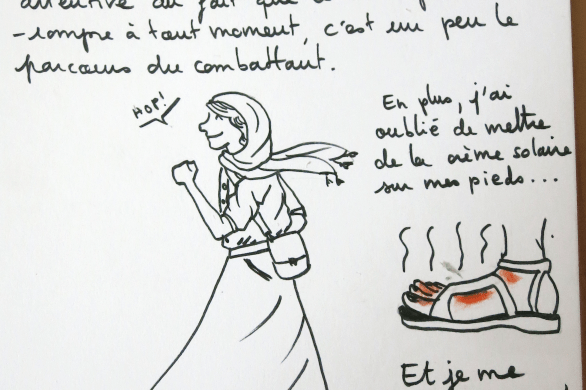 attentive au fait que
-rompre à tout moment, c'est un peu le
parcours du combattant.
HOP!
En plus, j'ai
oublié de mettre
de la crème solaire
sur mes pieds...
Et je me